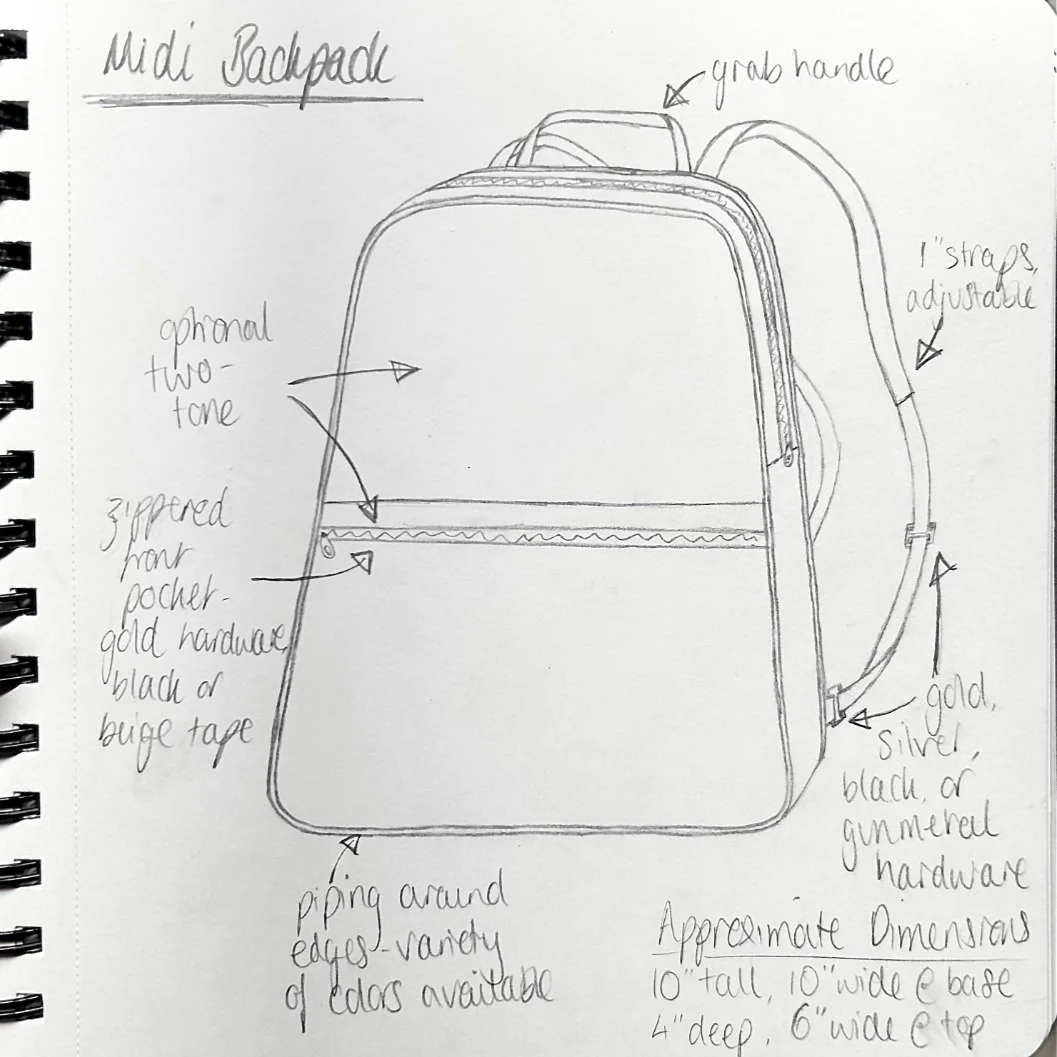 Midi Backpack
grab handle
1" straps,
adjustable
optional
two-
tone
zippered
front
pocket-
gold hardware,
black or
beige tape
gold,
silver,
black, or
gunmetal
hardware
piping around
edges-variety
of colors available
Approximate Dimensions
10" tall, 10" wide @ base
4" deep, 6" wide @ top